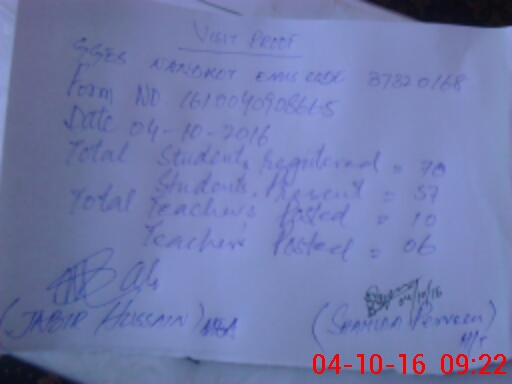 VISIT PROOF
GGES NANGKOT EMIS CODE 37320168
Form NO. 16100409086615
Date 04-10-2016
Total Students registered = 70
Students Present = 57
Total Teachers Posted = 10
Teachers Posted = 06
04/10/16
(JABIR HUSSAIN) MEA
(SHAMIM Perveen)
H/T
04-10-16 09:22